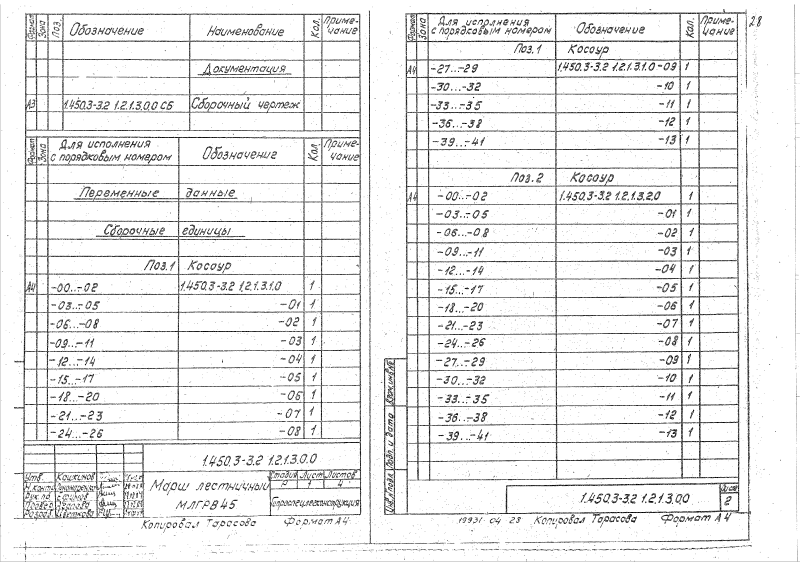 Формат Зона Поз. Обозначение Наименование Кол. Приме-чание
Документация
А3 1.450.3-3.2 1.2.1.3.0.0 СБ Сборочный чертеж
Формат Зона Для исполнения с порядковым номером Обозначение Кол. Приме-чание
Переменные данные
Сборочные единицы
Поз.1 Косоур
А4 -00...-02 1.450.3-3.2 1.2.1.3.1.0 1
-03...-05 -01 1
-06...-08 -02 1
-09...-11 -03 1
-12...-14 -04 1
-15...-17 -05 1
-18...-20 -06 1
-21...-23 -07 1
-24...-26 -08 1
1.450.3-3.2 1.2.1.3.0.0
Утв.
Н.конт.
Рук.гр.
Провер.
Разраб. Цветкова
Марш лестничный
МЛГРВ45
Стадия Лист Листов
Р 1 4
Гипроспецлегконструкция
Копировал Тарасова Формат А4
28
Формат Зона Для исполнения с порядковым номером Обозначение Кол. Приме-чание
Поз.1 Косоур
А4 -27...-29 1.450.3-3.2 1.2.1.3.1.0-09 1
-30...-32 -10 1
-33...-35 -11 1
-36...-38 -12 1
-39...-41 -13 1
Поз.2 Косоур
А4 -00...-02 1.450.3-3.2 1.2.1.3.2.0 1
-03...-05 -01 1
-06...-08 -02 1
-09...-11 -03 1
-12...-14 -04 1
-15...-17 -05 1
-18...-20 -06 1
-21...-23 -07 1
-24...-26 -08 1
-27...-29 -09 1
-30...-32 -10 1
-33...-35 -11 1
-36...-38 -12 1
-39...-41 -13 1
Инв.№подл. Подп. и дата Взам.инв.№
1.450.3-3.2 1.2.1.3.0.0
Лист
2
19931-04 28 Копировал Тарасова Формат А4